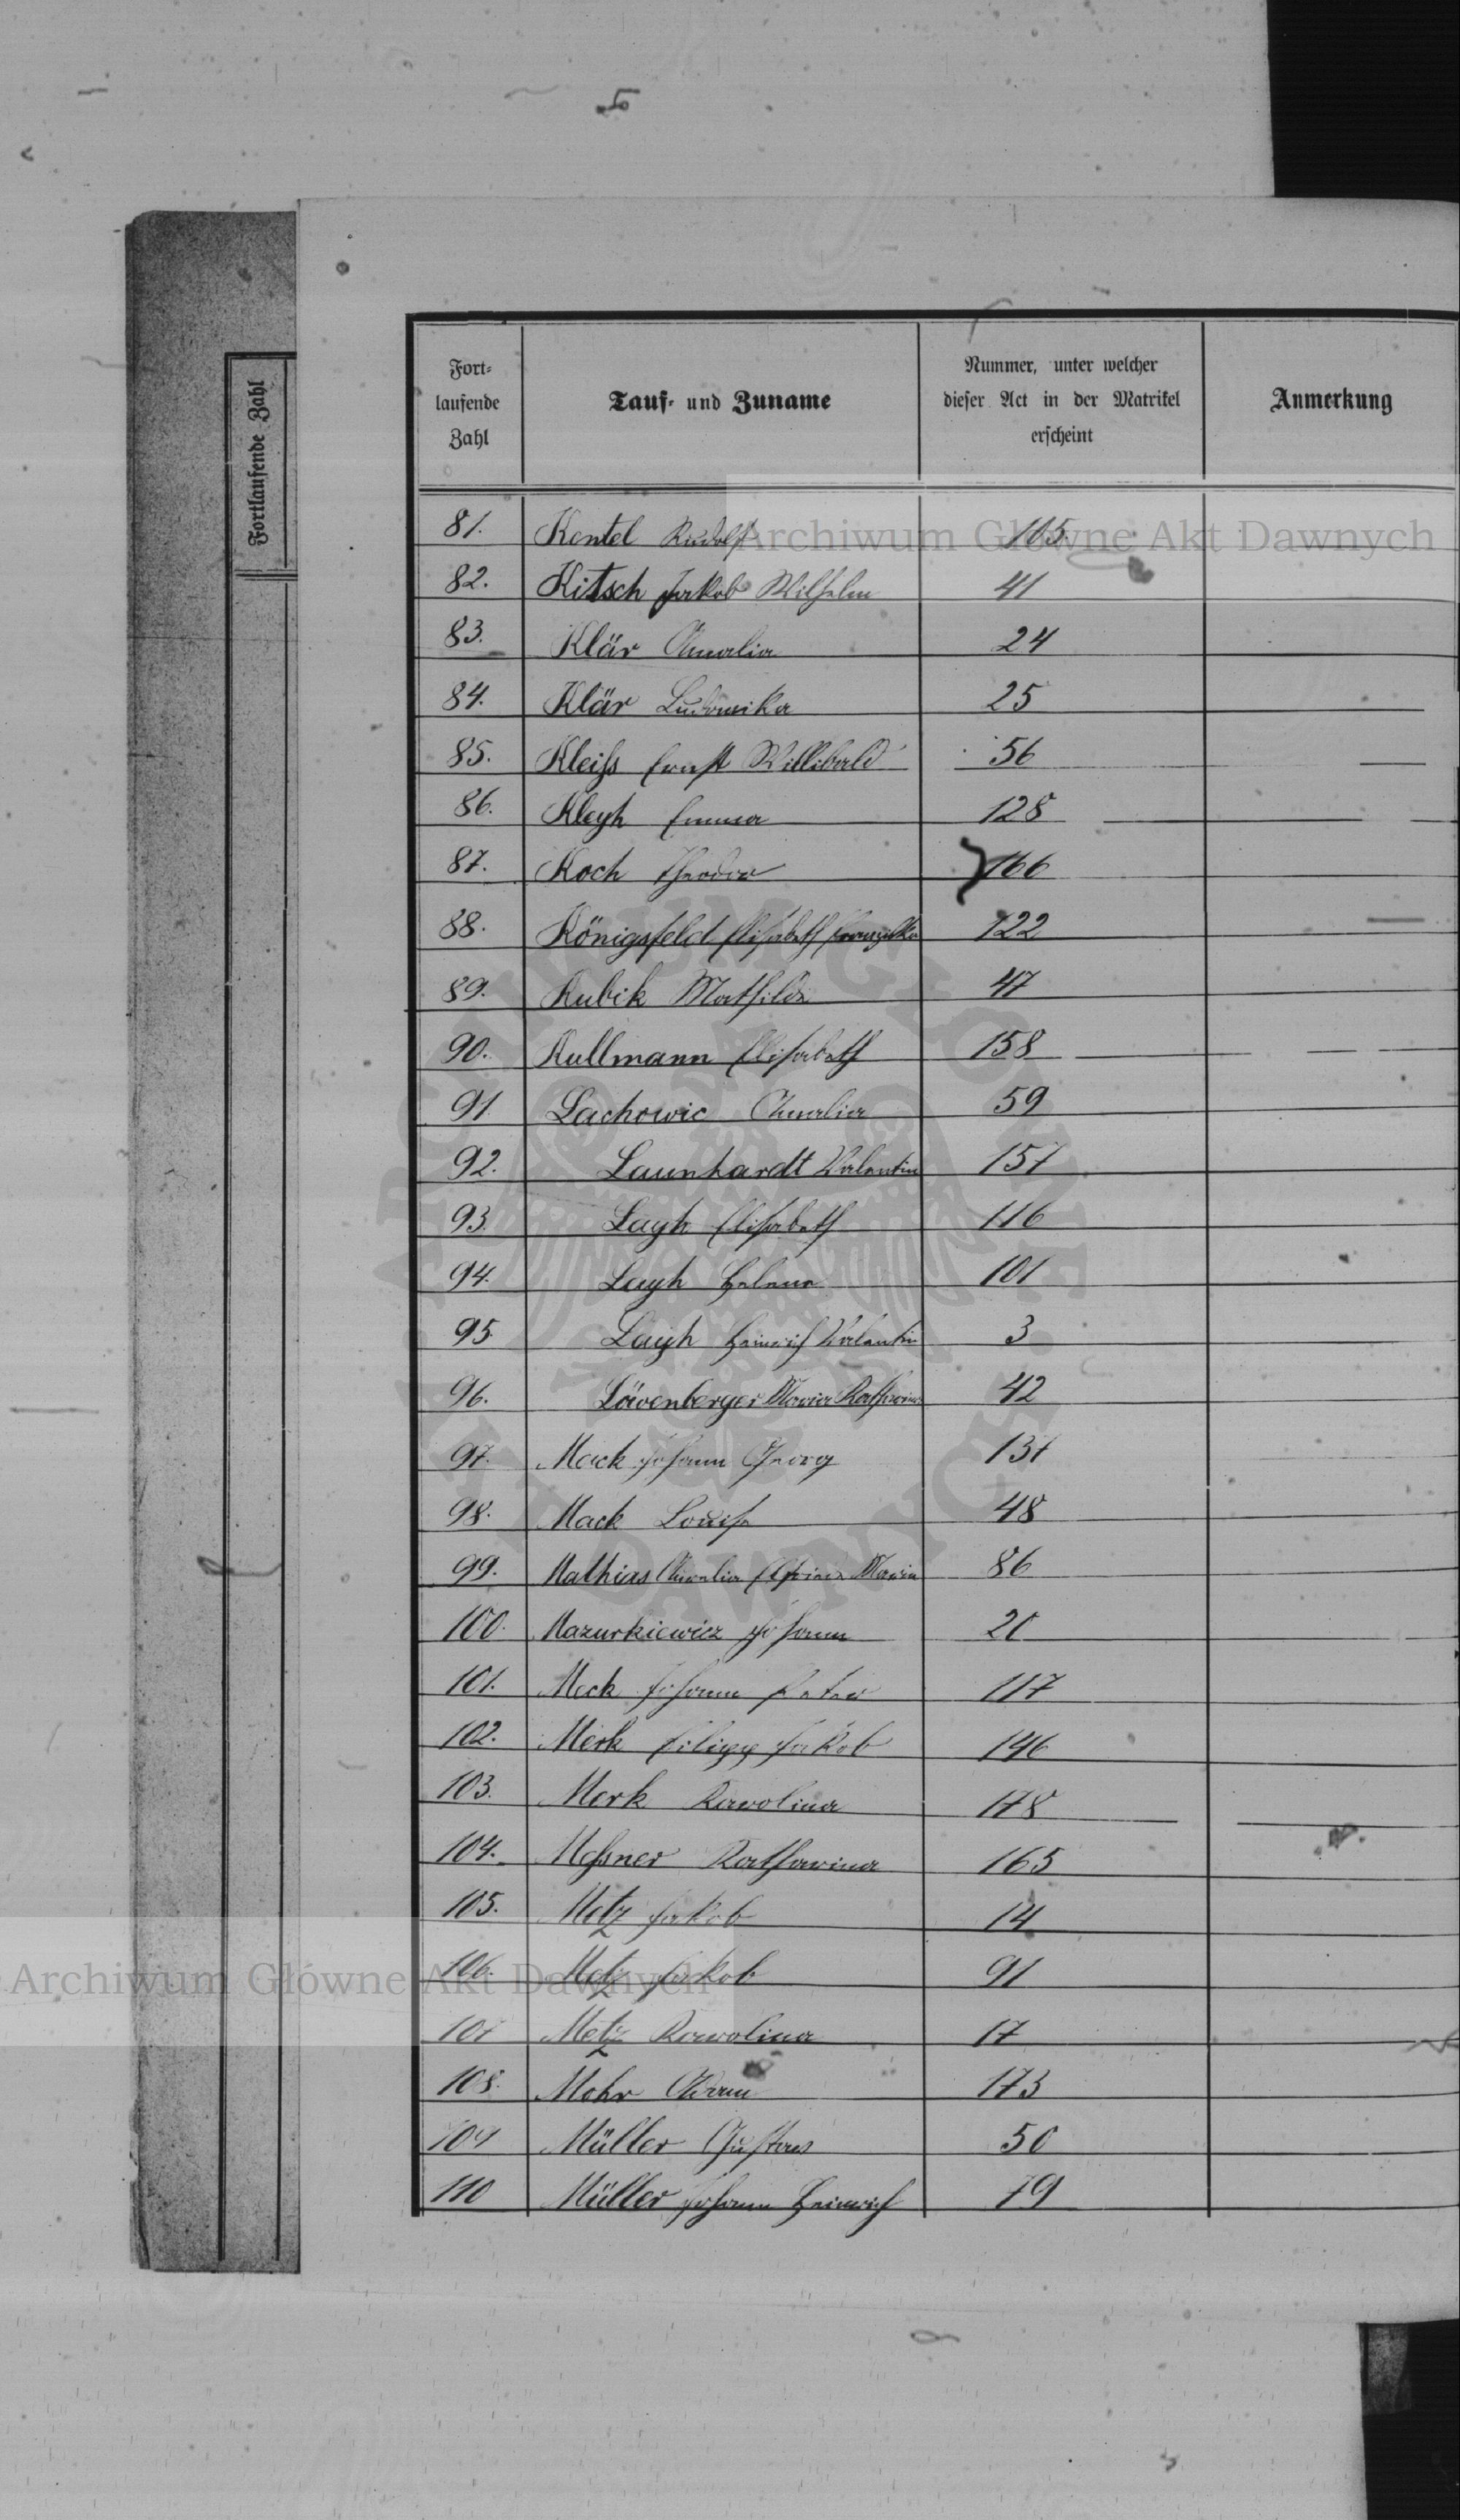 Fortlaufende Zahl
Fort-
laufende
Zahl
Tauf- und Zuname
Nummer, unter welcher
dieser Act in der Matrikel
erscheint
Anmerkung
81. Kentel Rudolf 105.
82. Kitsch Jakob Wilhelm 41
83. Klär Amalia 24
84. Klär Ludowika 25
85. Kleiß Ernst Willibald 56
86. Kleyh Emma 128
87. Koch Theodor 166
88. Königsfeld Elisabeth 122
89. Kubik Mathilde 47
90. Kullmann Elisabeth 158
91. Lachowic Amalia 59
92. Launhardt Valentin 157
93. Layh Elisabeth 116
94. Layh Helene 101
95 Layh Heinrich Valentin 3
96. Löwenberger Maria Katharina 42
97. Mack Johann Georg 137
98. Mack Louise 48
99. Mathias Amalia Maria 86
100. Mazurkiewicz Johann 20
101. Meck Johann Peter 117
102. Merk Filipp Jakob 146
103. Merk Karolina 178
104. Meßner Katharina 165
105. Metz Jakob 14
106. Metz Jakob 91
107 Metz Karolina 17
108. Mohr Adam 173
109 Müller Gustav 50
110 Müller Johann Heinrich 79
Archiwum Główne Akt Dawnych
Archiwum Główne Akt Dawnych
ARCHIWUM GŁÓWNE AKT DAWNYCH